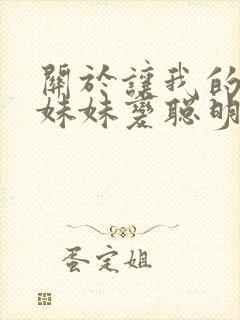 關於讓我的
妹妹變聰明
蛋定姐